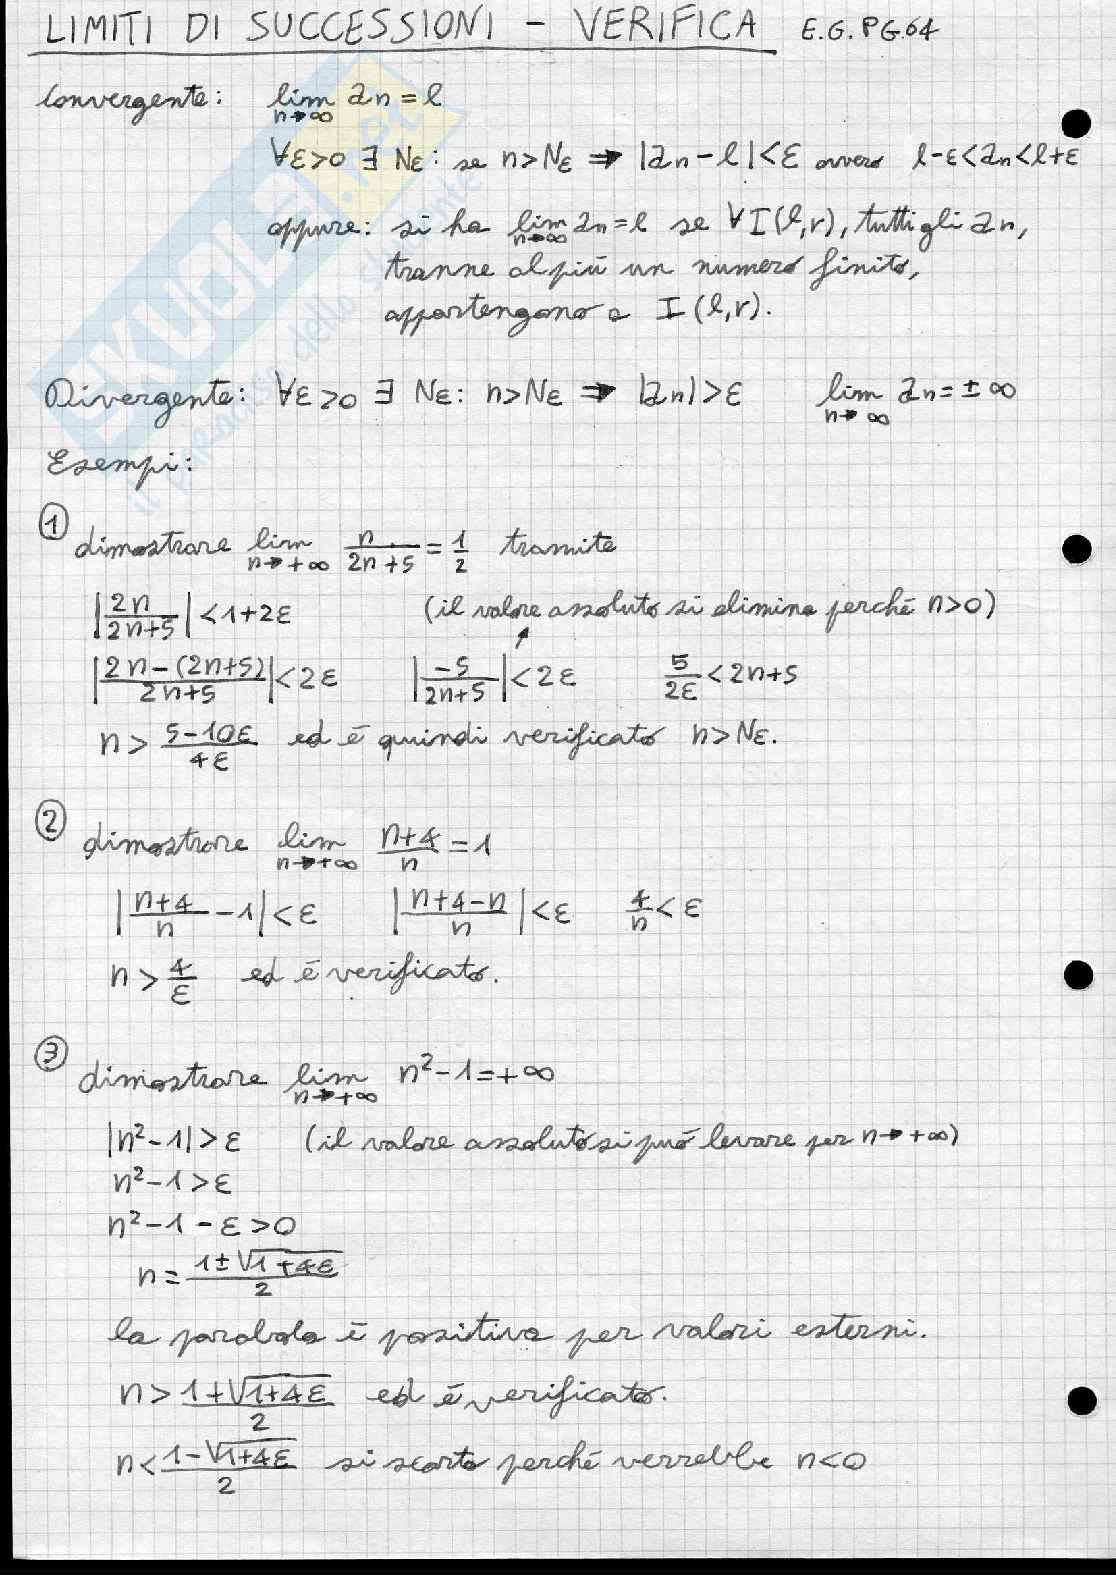 LIMITI DI SUCCESSIONI - VERIFICA E.G. PG.64
Convergente: lim n→∞ an = l
∀ε>0 ∃ Nε: se n>Nε ⇒ |an-l|<ε ovvero l-ε<an<l+ε
oppure: si ha lim n→∞ an=l se ∀I(l,r), tutti gli an,
tranne al più un numero finito,
appartengono a I(l,r).
Divergente: ∀ε>0 ∃ Nε: n>Nε ⇒ |an|>ε lim n→∞ an=±∞
Esempi:
① dimostrare lim n→+∞ n/(2n+5) = 1/2 tramite
|2n/(2n+5)| < 1+2ε (il valore assoluto si elimina perché n>0)
|(2n-(2n+5))/(2n+5)| < 2ε |-5/(2n+5)| < 2ε 5/2ε < 2n+5
n > (5-10ε)/4ε ed é quindi verificato n>Nε.
② dimostrare lim n→+∞ (n+4)/n = 1
|(n+4)/n - 1| < ε |(n+4-n)/n| < ε 4/n < ε
n > 4/ε ed é verificato.
③ dimostrare lim n→+∞ n²-1=+∞
|n²-1|>ε (il valore assoluto si puó levare per n→+∞)
n²-1>ε
n²-1-ε>0
n = (1±√(1+4ε))/2
la parabola é positiva per valori esterni.
n > (1+√(1+4ε))/2 ed é verificato.
n < (1-√(1+4ε))/2 si scarta perché verrebbe n<0
SKUOLA.net
il paradiso dello studente